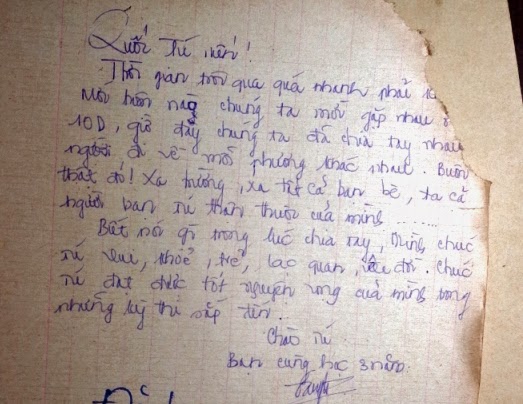 Tú mến!
Thời gian trôi qua quá nhanh phải
Mới hôm nào chúng ta mới gặp nhau
10D, giờ đây chúng ta đã chia tay nhau
người đi về mỗi phương khác nhau. Buồn
thật đó! Xa trường, xa tất cả bạn bè, xa cả
người bạn Tú thân thuộc của mình
Biết nói gì trong lúc chia tay, Mừng chúc
Tú vui, khoẻ, trẻ, lạc quan, yêu đời. Chúc
Tú đạt được tốt nguyện vọng của mình trong
những kỳ thi sắp đến.
Chào Tú
Bạn cùng học 3 năm.